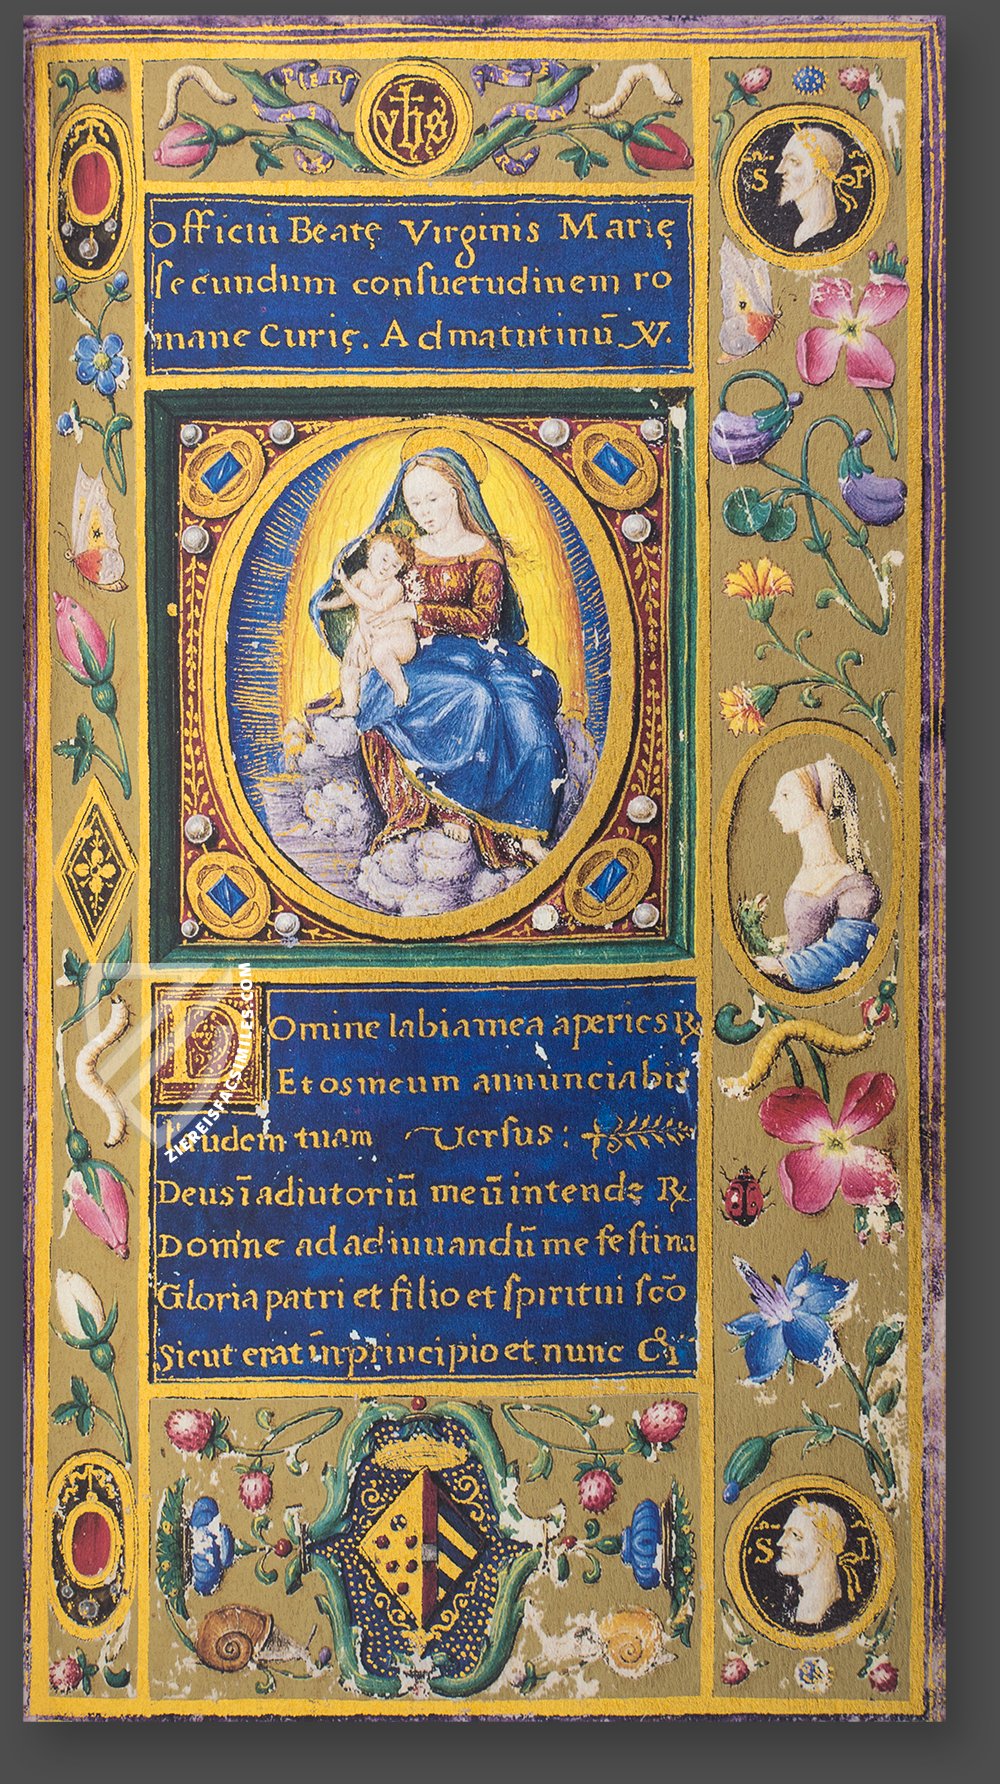 yhs
S P
Officiu Beatę Virginis Marię
ſecundum conſuetudinem ro
mane Curię. Ad matutinū ꝟ.
Domine labia mea aperies ℞
Et os meum annunciabit
laudem tuam Uerſus:
Deus ī adiutoriū meū intende ℞
Domīne ad adiuuandū me feſtina
Gloria patri et filio et ſpiritui ſcō
Sicut erat in principio et nunc &
S I
ZIEREISFACSIMILES.COM